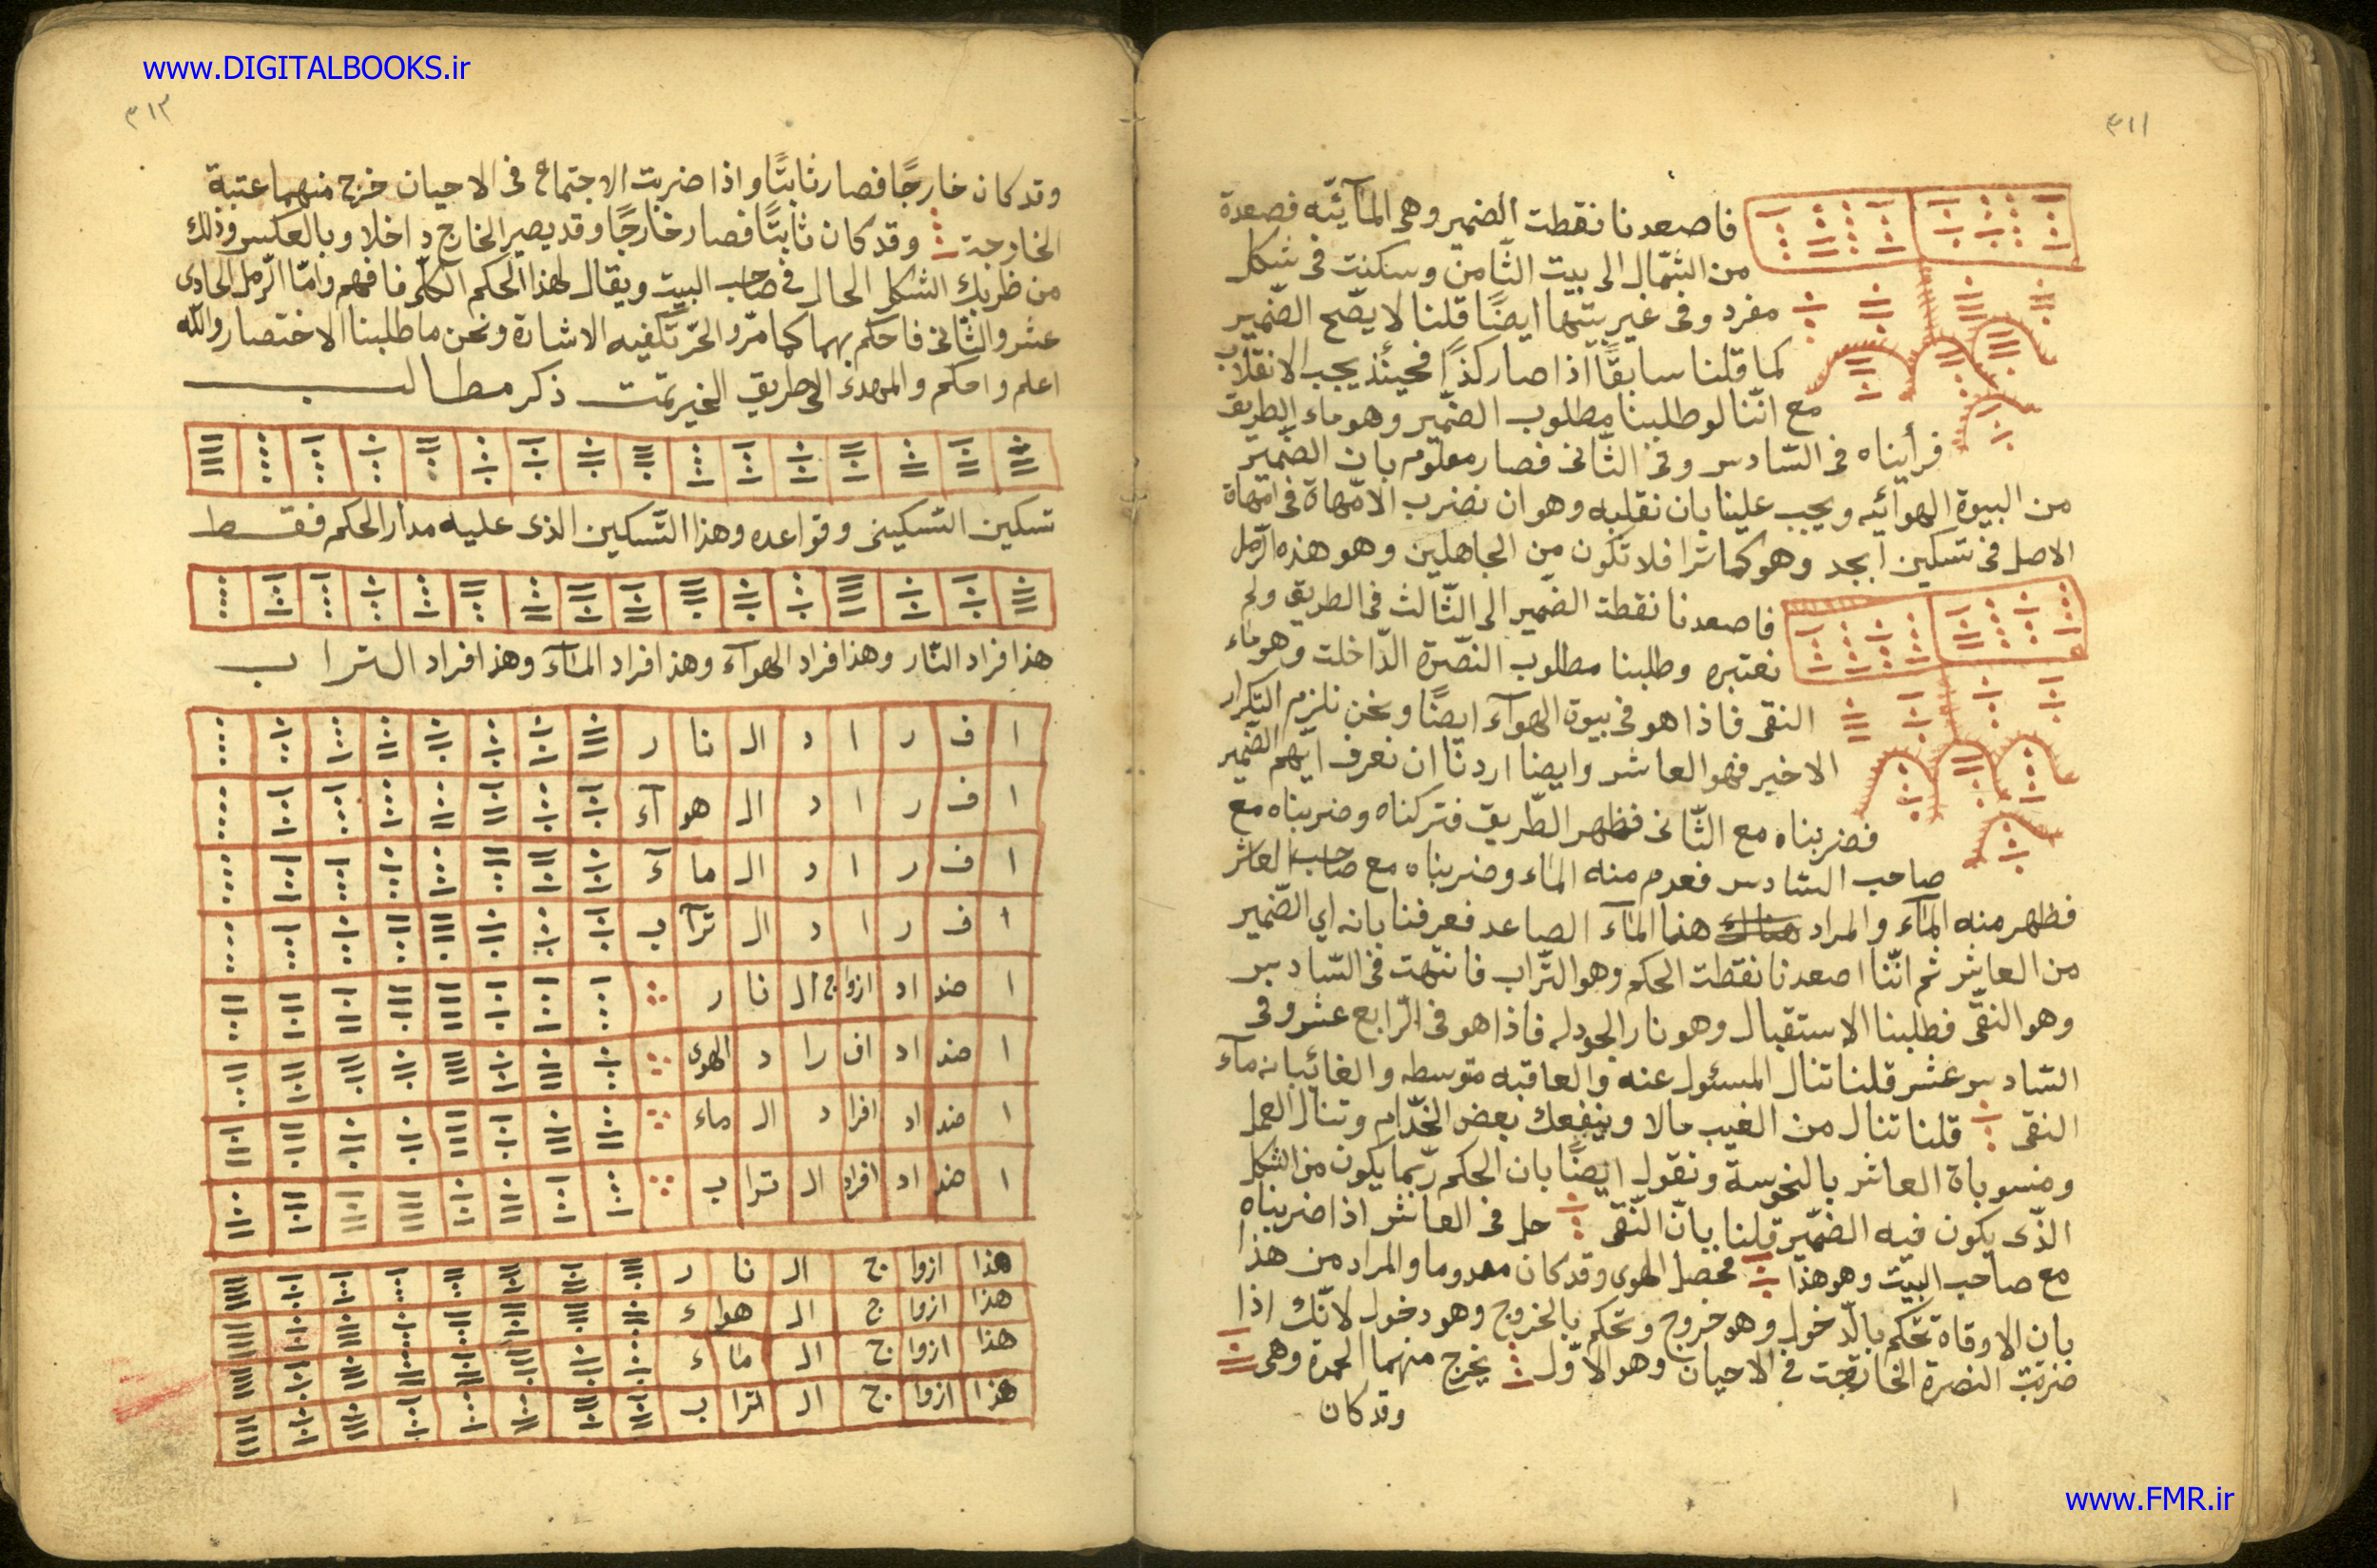 www.DIGITALBOOKS.ir
٣١١
فاصعدنا نقطت الضمير وهى المآئيّه فصعدة
من الشّمال الى بيت الثّامن وسكنت فى شكل
مفرد وفى غير بيتها ايضًا قلنا لا يصّح الضّمير
كما قلنا سابقًا اذا صار كذا فحينئذ يجب الانقلاب
مع انّنا لو طلبنا مطلوب الضّمير وهو ماء الطريق
فرأيناه فى السّادس وفى الثّانى فصار معلوم بان الضّمير
من البيوة الهوائيه ويجب علينا بان نقلبه وهو ان نضرب الامّهاة فى امّهاة
الاصل فى تسكين ابجد وهو كما ترا فلا تكون من الجاهلين وهو هذه الرّمل
فاصعدنا نقطت الضمير الى الثّالث فى الطريق ولم
نعتبره وطلبنا مطلوب النصّرة الدّاخلت وهو ماء
النقى فاذا هو فى بيوة الهوآء ايضًا ونحن نلزم التكرار
الاخير فهو العاشر وايضا اردنّا ان نعرف ايهم الضّمير
فضربناه مع الثّانى فظهر الطّريق فتركناه وضربناه مع
صاحب السّادس فعدم منه الماء وضربناه مع صاحب العاشر
فظهر منه المآء والمراد هذا المآء الصاعد فعرفنا بانه اي الضّمير
من العاشر ثم انّنا اصعدنا نقطت الحكم وهو التّراب فانتهت فى السّادس
وهو النقّى فطلبنا الاستقبال وهو نار الجودله فاذا هو فى الرّابع عشر وفى
السّادس عشر قلنا تنال المسئول عنه والعاقبه متوسطه والغائبانه مآء
النقى قلنا تنال من الغيب مالا وينفعك بعض الخدّام وتنال العمل
ومنسوباة العاشر بالنحوسة ونقول ايضًا بان الحكم ربّما يكون من الشكل
الذّى يكون فيه الضمّير قلنا بانّ النّقى حل فى العاشر اذا ضربناه
مع صاحب البيت وهو هذا محصل الهوى وقد كان معدوما والمراد من هذا
بان الاوقاة تحكم بالدّخول وهو خروج وتحكم بالخروج وهو دخول لانّك اذا
ضربت النصرة الخارجت فى الاحيان وهو الاوّل يخرج منهما الحمرة وهى
وقد كان
٣١٣
وقد كان خارجًا فصار ثابتًا واذا ضربت الاجتماع فى الاحيان خرج منهما عتبة
الخارجة وقد كان ثابتًا فصار خارجًا وقد يصير الخارج داخلا وبالعكس وذلك
من ظربك الشكل الحال فى صاحب البيت ويقال لهذا الحكم الكلّى فافهم وامّا الرّمل الحادى
عشر والثّانى فاحكم بهما كما مرّ والحرّ تكفيه الاشارة ونحن ما طلبنا الاختصار واللّه
اعلم واحكم والمهدى الى طريق الخير تمّت ذكر مطالب
تسكين التسكينى وقواعده وهذا التّسكين الذى عليه مدار الحكم فقط
هذا افراد النّار وهذا افراد الهوآء وهذا افراد المآء وهذا افراد التراب
ا ف ر ا د ال نا ر
ا ف ر ا د ال هو آء
ا ف ر ا د ال ما ء
ا ف ر ا د ال ترآ ب
ا ضد اد ازواج ال نا ر
ا ضد اد اف را د الهوى
ا ضد اد افرا د ال ماء
ا ضد اد افراد ال ترا ب
هذا ازوا ج ال نا ر
هذا ازوا ج ال هوا ء
هذا ازوا ج ال ما ء
هذا ازوا ج ال ترا ب
www.FMR.ir